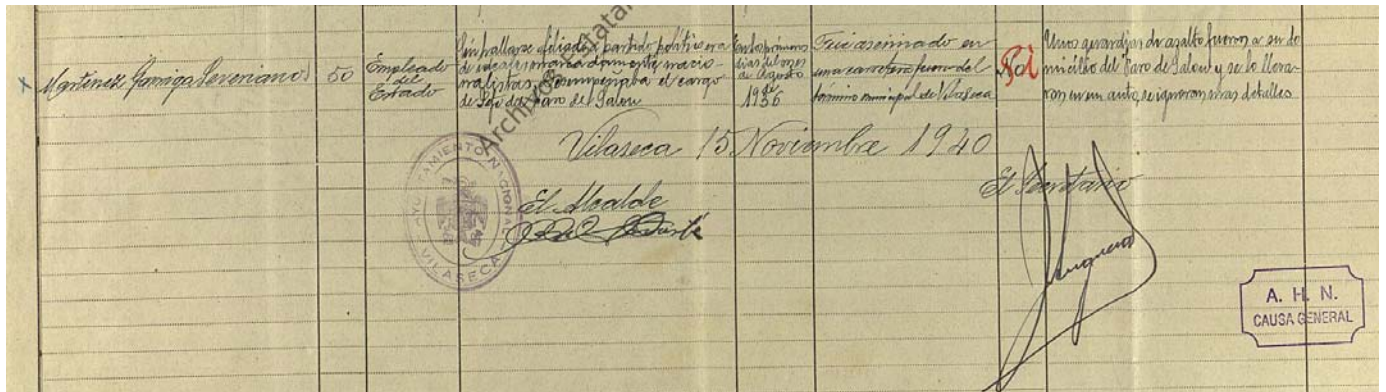 x Martinez Garriga Severiano
50
Empleado
del
Estado
Sin hallarse afiliado a partido político era
de ideas marcadamente nacio-
nalistas, desempeñaba el cargo
de Jefe del Faro de Salou
En los primeros
días del mes
de Agosto
de
1936
Fue asesinado en
una carretera fuera del
término municipal de Vilaseca
Sí
Unos guardias de asalto fueron a su do
micilio del Faro de Salou y se lo lleva-
ron en un auto, se ignoran mas detalles
Vilaseca 15 Noviembre 1940
El Alcalde
El Secretario
AYUNTAMIENTO NACIONAL
VILASECA
A. H. N.
CAUSA GENERAL